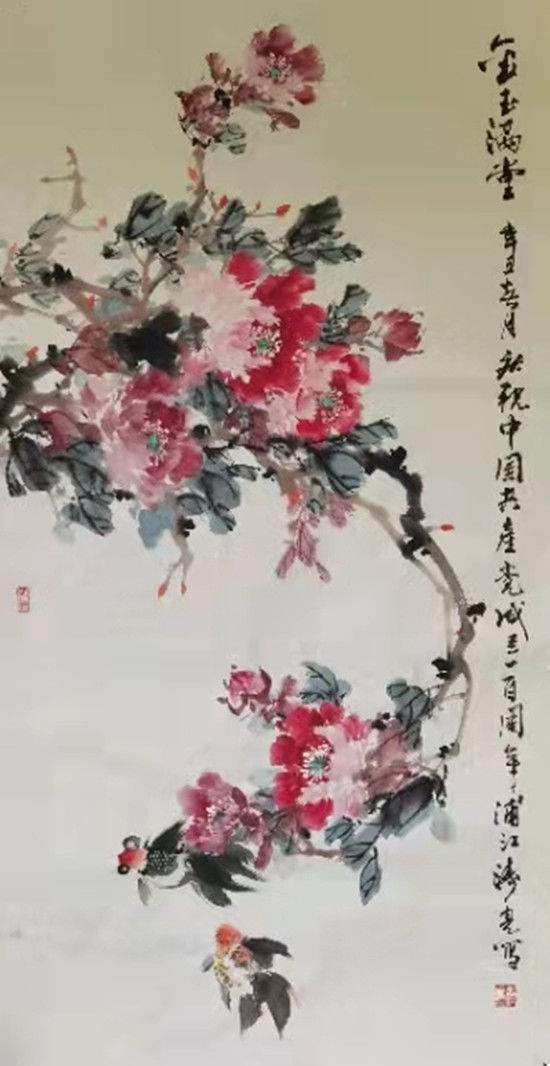 金玉满堂
辛丑春月 祝中国共产党成立一百周年 浦江涛写